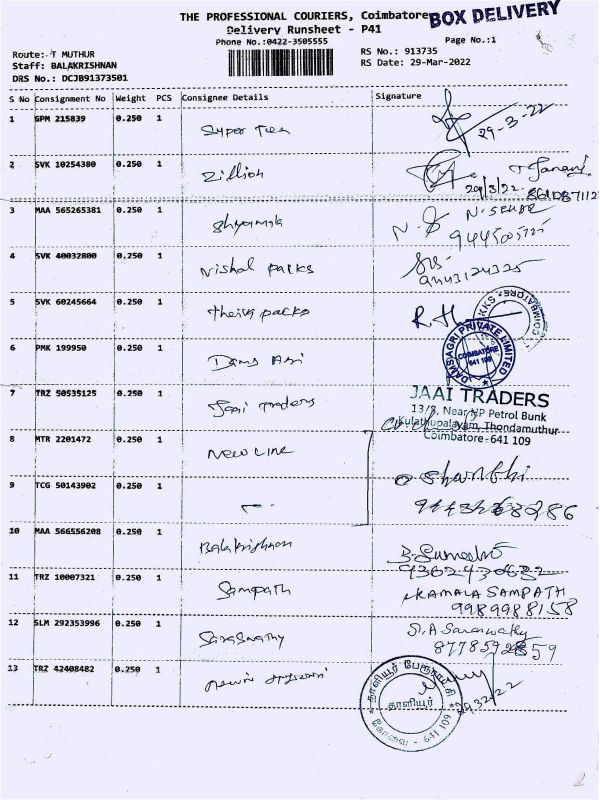 THE PROFESSIONAL COURIERS, Coimbatore
BOX DELIVERY
Delivery Runsheet - P41
Phone No.:0422-3505555
Page No.:1
Route: T MUTHUR
RS No.: 913735
Staff: BALAKRISHNAN
RS Date: 29-Mar-2022
DRS No.: DCJB91373501
S No Consignment No Weight PCS Consignee Details Signature
1 GPM 215839 0.250 1 Super Tex 29-3-22
2 SVK 10254380 0.250 1 Zillion
29/3/22
3 MAA 565265381 0.250 1 Shyamala N. SEKAR
4 SVK 40032800 0.250 1 Vishal packs
5 SVK 60245664 0.250 1 Theiva packs
COIMBATORE
6 PMK 199950 0.250 1 Dams Agri
DAMSAGRI PRIVATE LIMITED
COIMBATORE
641 109
7 TRZ 50535125 0.250 1 Jaai Traders
JAAI TRADERS
13/8, Near HP Petrol Bunk
Kulathupalayam, Thondamuthur
Coimbatore-641 109
8 MTR 2201472 0.250 1 New Line
9 TCG 50143902 0.250 1
10 MAA 566556208 0.250 1 Balakrishnan
11 TRZ 10007321 0.250 1 Sampath KAMALA SAMPATH
9989988158
12 SLM 292353996 0.250 1 Saraswathy
13 TRZ 42408482 0.250 1
தாளியூர் பேரூராட்சி
தாளியூர்
கோவை - 641 109